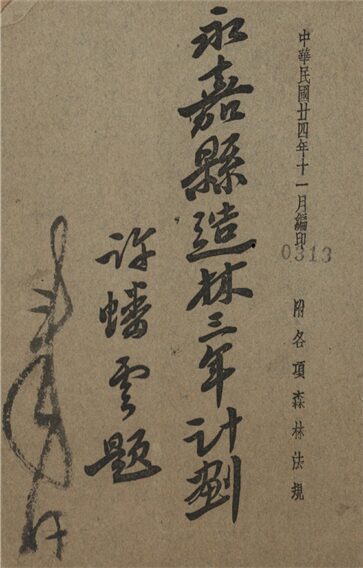 中華民國廿四年十一月編印
0313
附各項森林法規
永嘉縣造林三年計劃
許蟠雲題